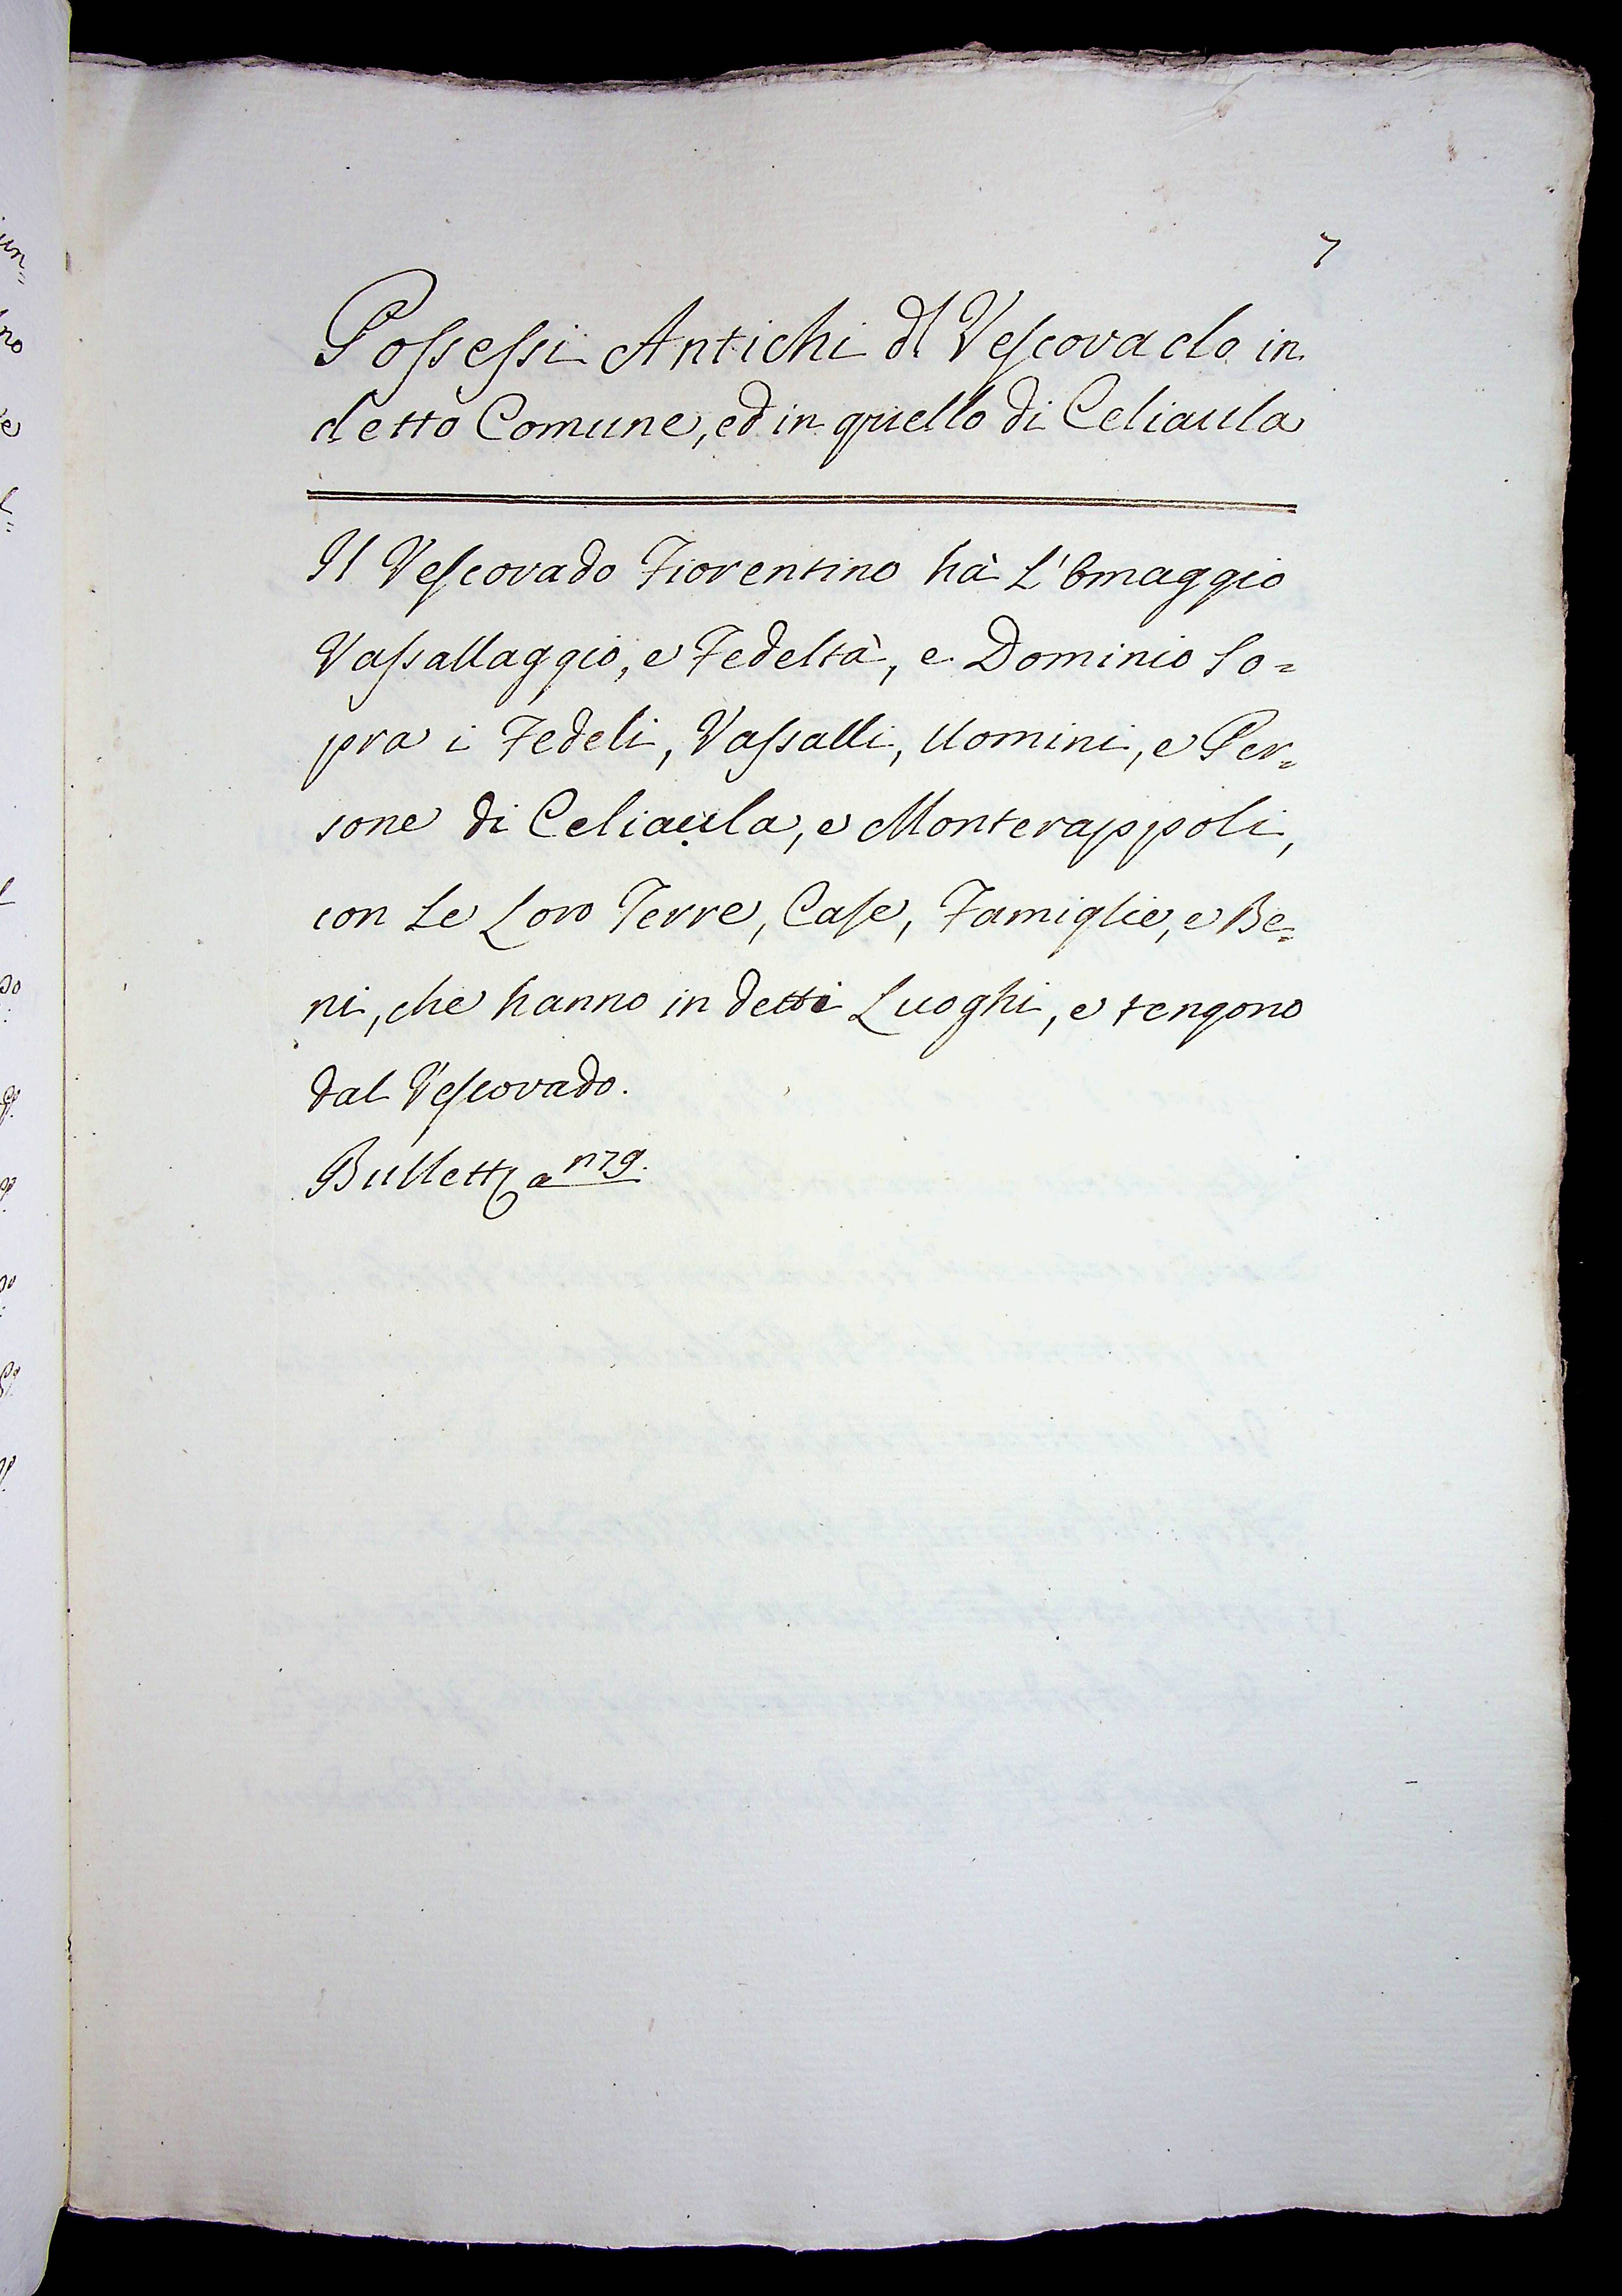 7
Possessi Antichi dl Vescovado in
detto Comune, ed in quello di Celiaula
Il Vescovado Fiorentino hà L'Omaggio
Vassallaggio, e Fedeltà, e Dominio So=
pra i Fedeli, Vassalli, Uomini, e Per=
sone di Celiaula, e Monterappoli,
con Le Loro Terre, Case, Famiglie, e Be=
ni, che hanno in detti Luoghi, e tengono
dal Vescovado.
Bullett a 179.